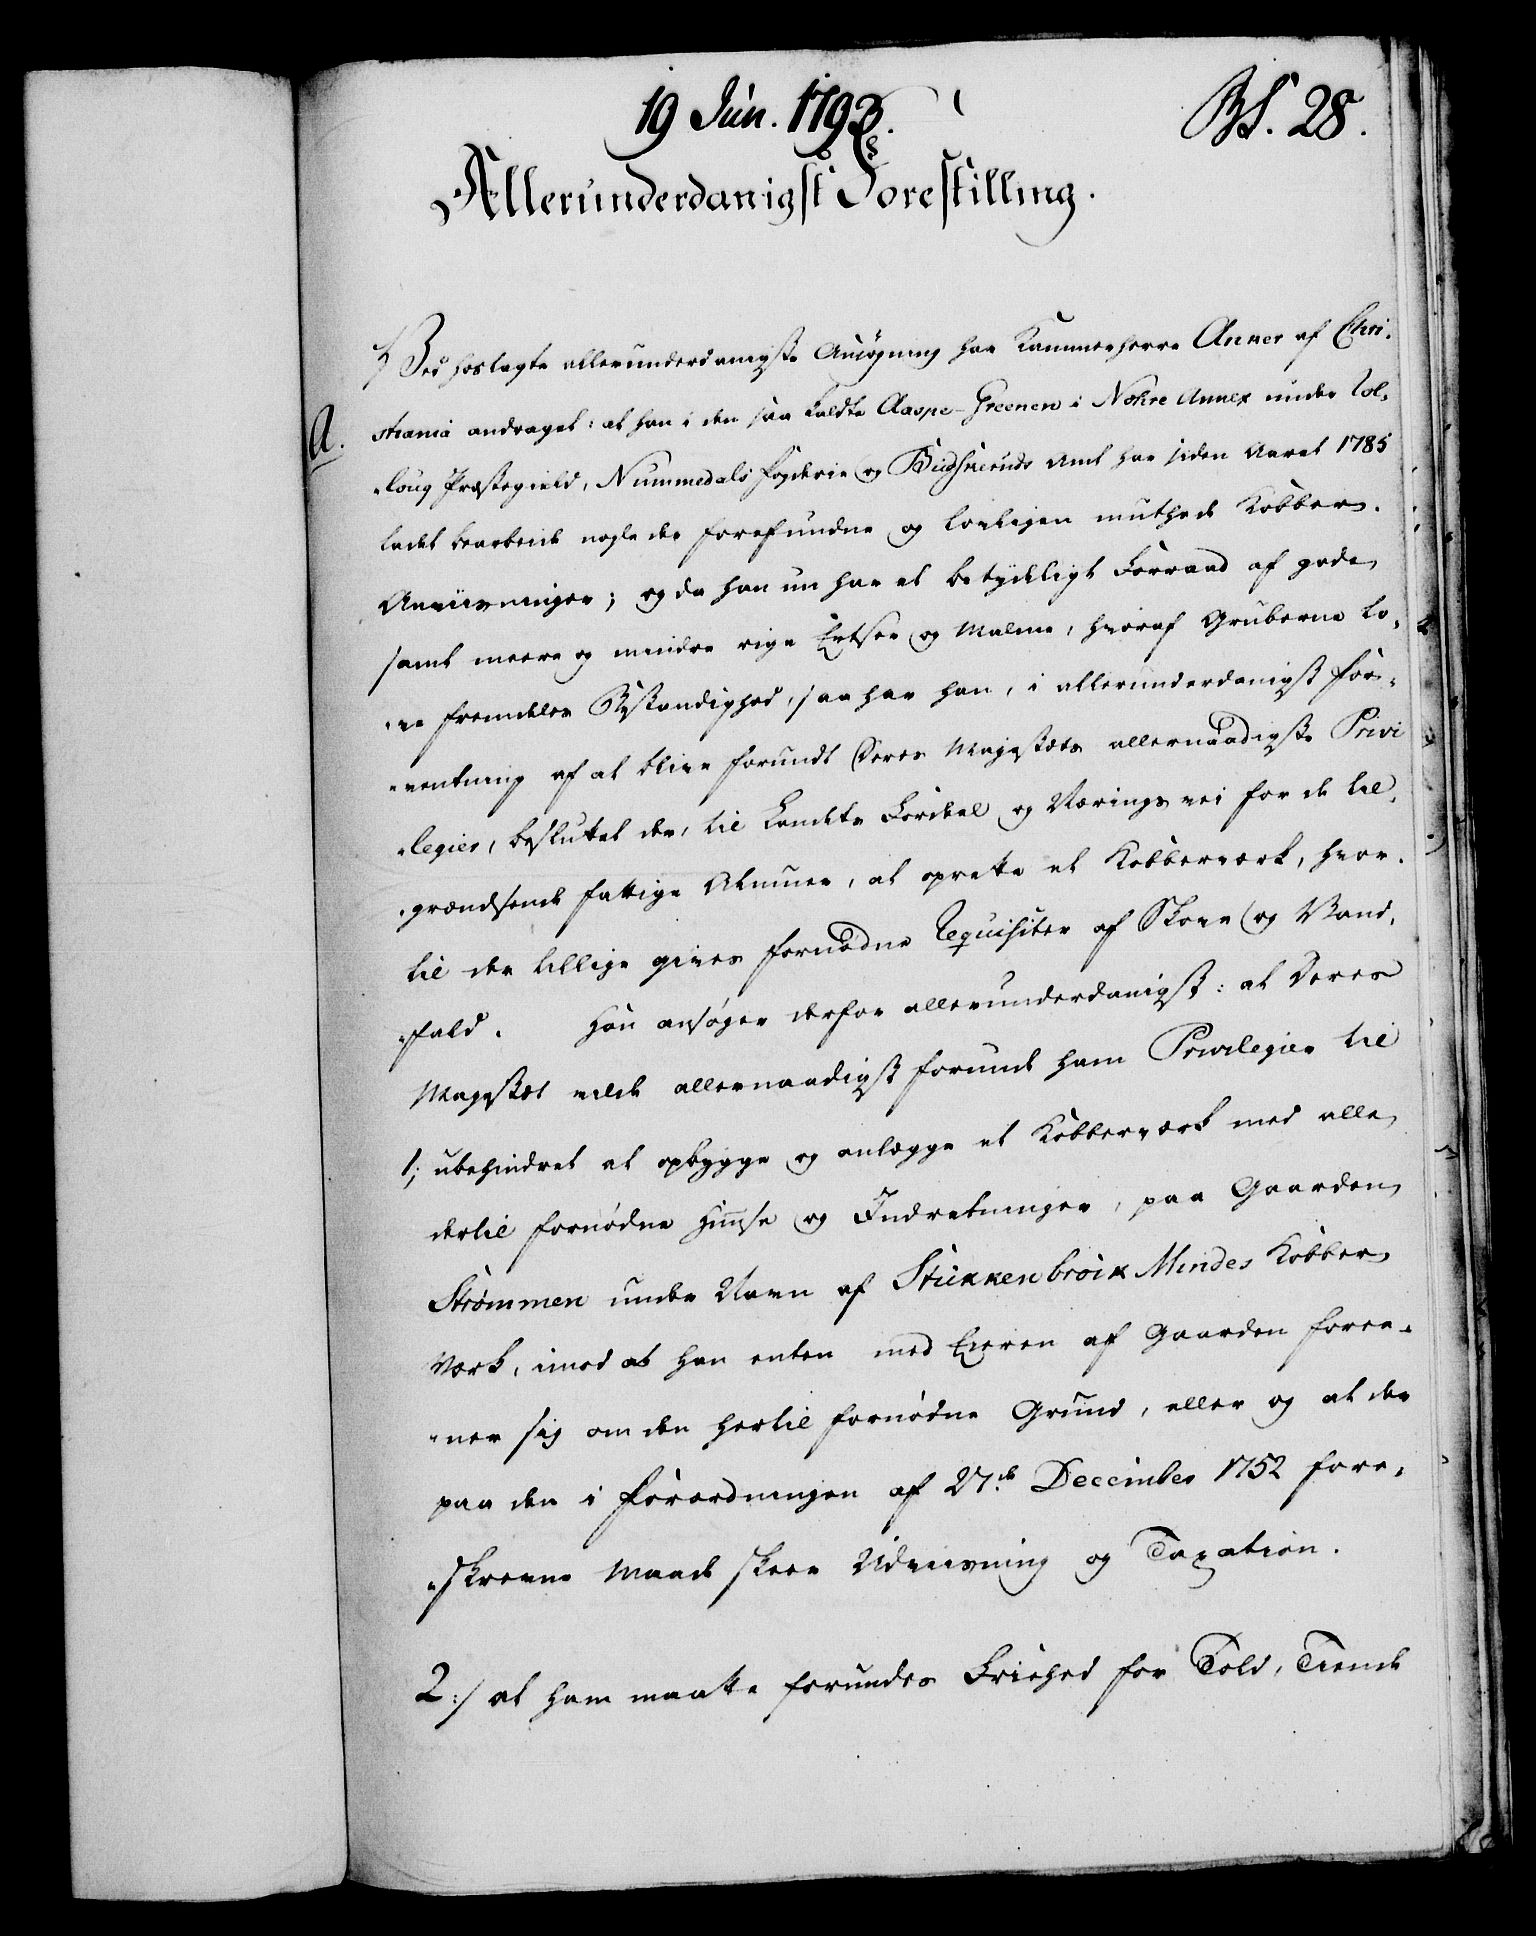 19 Jun. 1793.
BS. 28.
Allerunderdanigst Forestilling.
Ved hoslagte allerunderdanigste Ansøgning har Kammerherre Anker af Chri-
A.
stiania andraget: at han i den saa kaldte Aaspe-Greenen i Nohre Annex under Rol-
loug Præstegield, Nummedals Fogderie og Budsneruds Amt har siden Aaret 1785
ladet bearbeide nogle der forefundne og lovligen muthede Kobber-
Anviisninger; og da han nu har et betydeligt Forraad af gode
samt meere og mindre rige Ertser og Malme, hvoraf Gruberne lo-
ve fremdeles Bestandighed, saa har han, i allerunderdanigst for-
ventning af at blive forundt Deres Majestæts allernaadigste Privi
legier, besluttet der, til Landets Fordeel og Nærings vei for de til-
grændsende fattige Almuer, at oprette et Kobberværk, hvor-
til der tillige gives fornødne Requisiter af Skove og Vand-
fald. Han ansøger derfor allerunderdanigst: at Deres
Majestæt vilde allernaadigst forunde ham Privilegier til
1; ubehindret at opbygge og anlægge et Kobberværk med alle
dertil fornødne Huuse og Indretninger, paa Gaarden
Strømmen under Navn af Stukkenbrøik Mindes Kobber
Værk, imod at han enten med Eieren af Gaarden foree-
ner sig om den hertil fornødne Grund, eller og at der
paa den i Forordningen af 27de December 1752 fore-
skrevne Maade skeer Udviisning og Taxation.
2:/ at ham maatte forundes Friehed for Told, Tiende